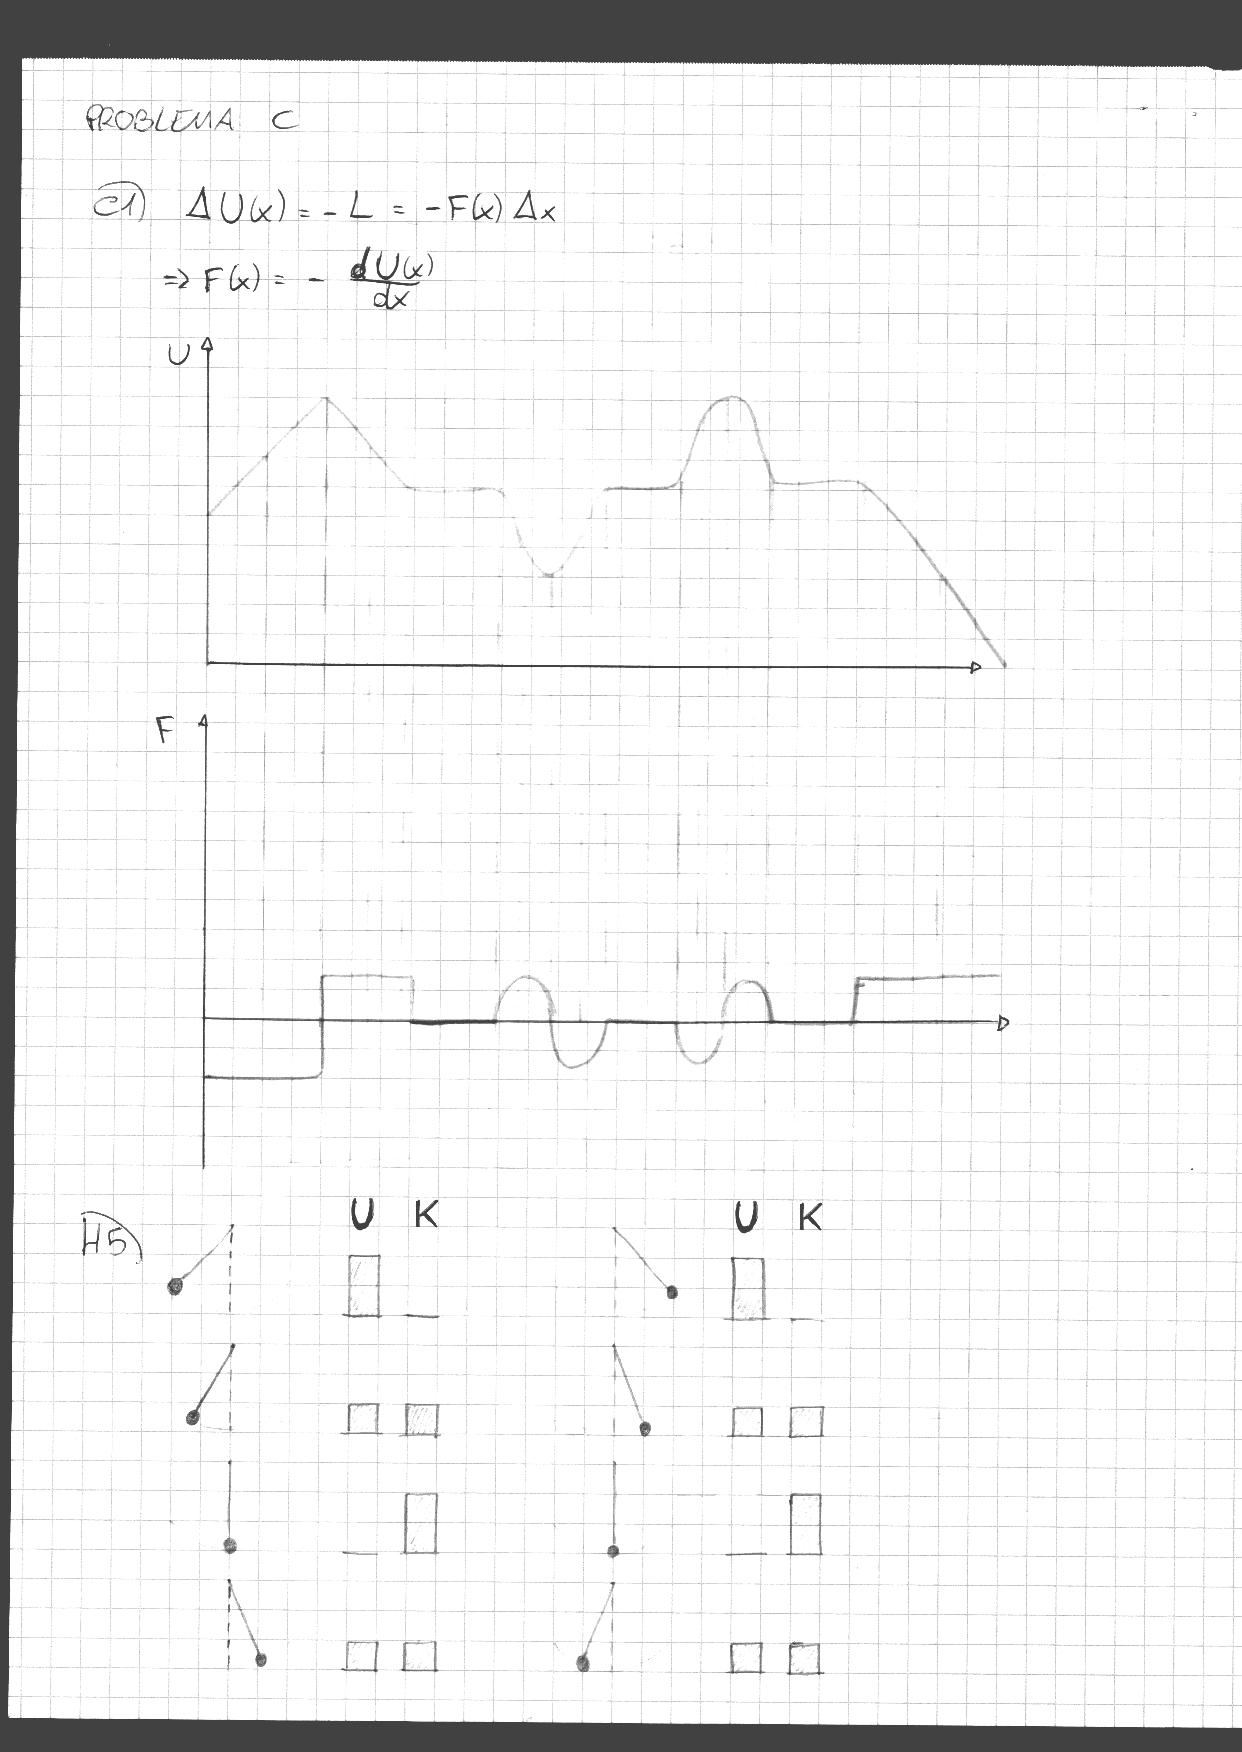 PROBLEMA C
C1) ΔU(x) = - L = - F(x) Δx
⇒ F(x) = - dU(x)/dx
U
F
H5)
U K
U K